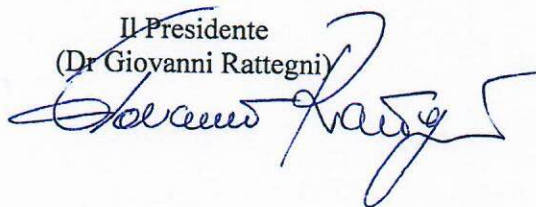 Il Presidente
(Dr Giovanni Rattegni)
Giovanni Rattegni